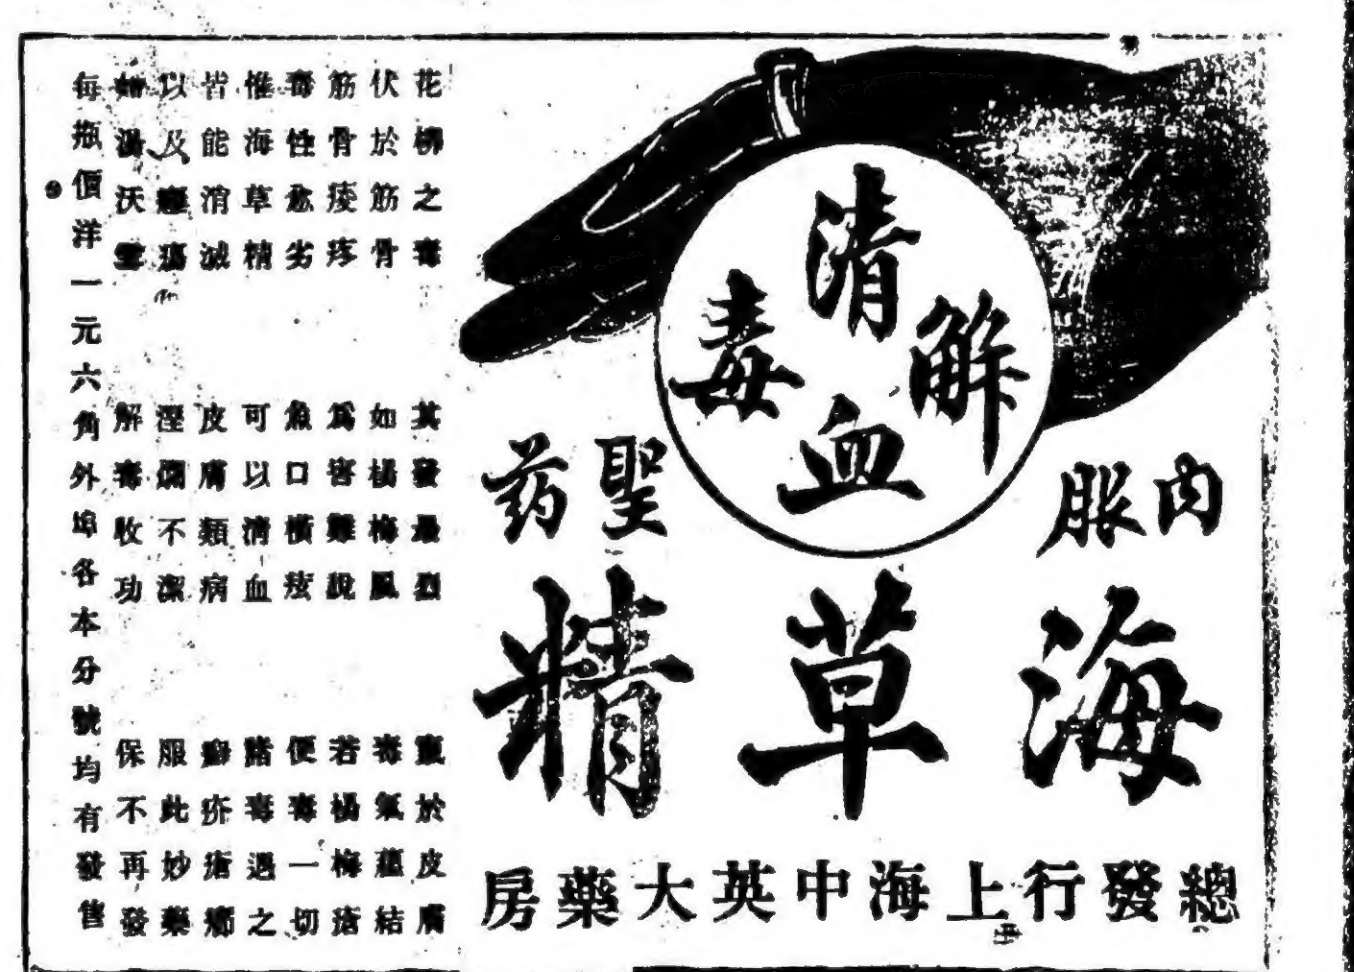 清血解毒
內服聖药
海草精
總發行上海中英大藥房
花柳之毒 其發最烈 竄於皮膚
伏於筋骨 如楊梅風 毒氣蘊結
筋骨痠疼 爲害難說 若楊梅瘡
毒性愈劣 魚口橫痃 便毒一切
惟海草精 可以清血 諸毒遇之
皆能消滅 皮膚類病 癬疥瘡癤
以及癰瘍 溼爛不潔 服此妙藥
如湯沃雪 解毒收功 保不再發
每瓶價洋一元六角外埠各本分號均有發售